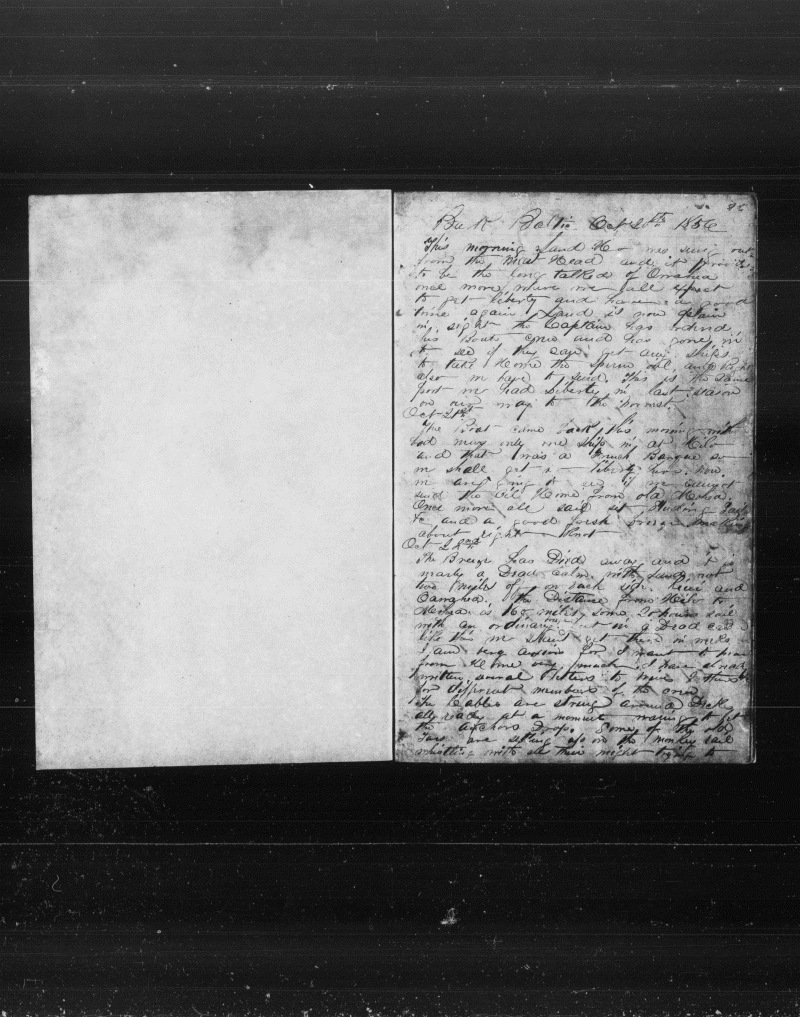 Bark Baltic Oct 20th 1856
This morning Land Ho was sung out
from the Mast Head and it proved
to be the long talked of
once more where we all expect
to get liberty and have a good
time again Land is now plain
in sight the Captain has
his Boats crew and has gone in
to see if they can get any ships
to take Home the Sperm oil and
also we have to send. This is the same
port we had Liberty in last season
on our way to the
Oct 21st
The Boat came back this morning with
bad only one ship in at Hilo
and that was a French Barque so
we shall get no liberty here. Now
we are going to see if we cannot
send the Oil Home from old
Once more all sail set
&c and a good fresh breeze
about eight Knot
Oct 22nd
The Breeze has Died away and it is
nearly a Dead Calm with Land not
two miles of on each side
The Distance from Hilo to
is 160 miles some 20 hours sail
with an ordinary but in a Dead
like this we shant get there in weeks
I am very anxious for I want to hear
from Home very much. I have already
written several letters to
for different members of the crew
The Cables are strung around Deck
all ready at a moments to get
the anchors Drop. Some of the old
are sitting up on the monkey rail
whistling with all their might trying to